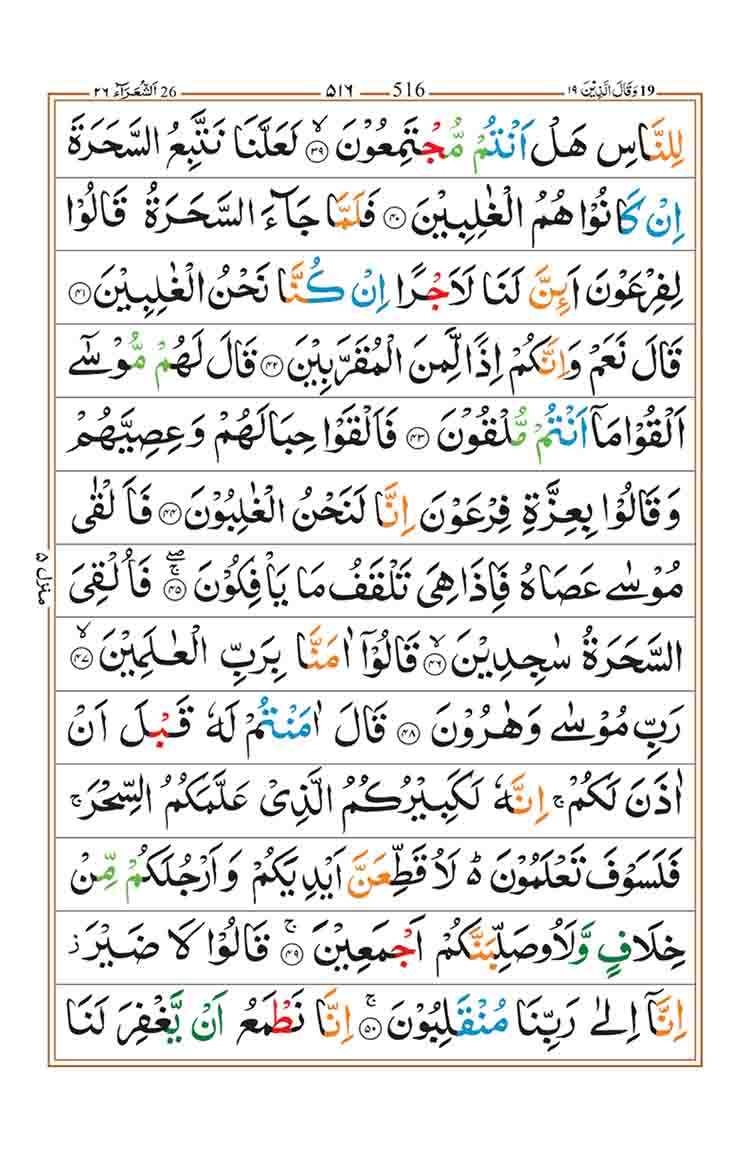 19 وَقَالَ الَّذِيْنَ ١٩ 516 ۵۱۶ 26 اَلشُّعَرَآء ٢٦
لِلنَّاسِ هَلْ اَنْتُمْ مُّجْتَمِعُوْنَ ۙ‏﴿۳۹﴾ لَعَلَّنَا نَتَّبِعُ السَّحَرَةَ
اِنْ كَانُوْا هُمُ الْغٰلِبِيْنَ ﴿۴۰﴾ فَلَمَّا جَآءَ السَّحَرَةُ قَالُوْا
لِفِرْعَوْنَ اَئِنَّ لَنَا لَاَجْرًا اِنْ كُنَّا نَحْنُ الْغٰلِبِيْنَ ﴿۴۱﴾
قَالَ نَعَمْ وَاِنَّكُمْ اِذًا لَّمِنَ الْمُقَرَّبِيْنَ ﴿۴۲﴾ قَالَ لَهُمْ مُّوْسٰٓى
اَلْقُوْا مَاۤ اَنْتُمْ مُّلْقُوْنَ ﴿۴۳﴾ فَاَلْقَوْا حِبَالَهُمْ وَعِصِيَّهُمْ
وَقَالُوْا بِعِزَّةِ فِرْعَوْنَ اِنَّا لَنَحْنُ الْغٰلِبُوْنَ ﴿۴۴﴾ فَاَلْقٰى
مُوْسٰى عَصَاهُ فَاِذَا هِىَ تَلْقَفُ مَا يَاْفِكُوْنَ ۚۖ‏﴿۴۵﴾ فَاُلْقِىَ
السَّحَرَةُ سٰجِدِيْنَ ۙ‏﴿۴۶﴾ قَالُوْۤا اٰمَنَّا بِرَبِّ الْعٰلَمِيْنَ ۙ‏﴿۴۷﴾
رَبِّ مُوْسٰى وَهٰرُوْنَ ﴿۴۸﴾ قَالَ اٰمَنْتُمْ لَهٗ قَبْلَ اَنْ
اٰذَنَ لَكُمْ‌ۚ اِنَّهٗ لَكَبِيْرُكُمُ الَّذِىْ عَلَّمَكُمُ السِّحْرَ‌ۚ
فَلَسَوْفَ تَعْلَمُوْنَ ؕ لَاُقَطِّعَنَّ اَيْدِيَكُمْ وَاَرْجُلَكُمْ مِّنْ
خِلَافٍ وَّلَاُوصَلِّبَنَّكُمْ اَجْمَعِيْنَ ۚ‏﴿۴۹﴾ قَالُوْا لَا ضَيْرَ‌ ز
اِنَّاۤ اِلٰى رَبِّنَا مُنْقَلِبُوْنَ ۚ‏﴿۵۰﴾ اِنَّا نَطْمَعُ اَنْ يَّغْفِرَ لَنَا
منزل ۵